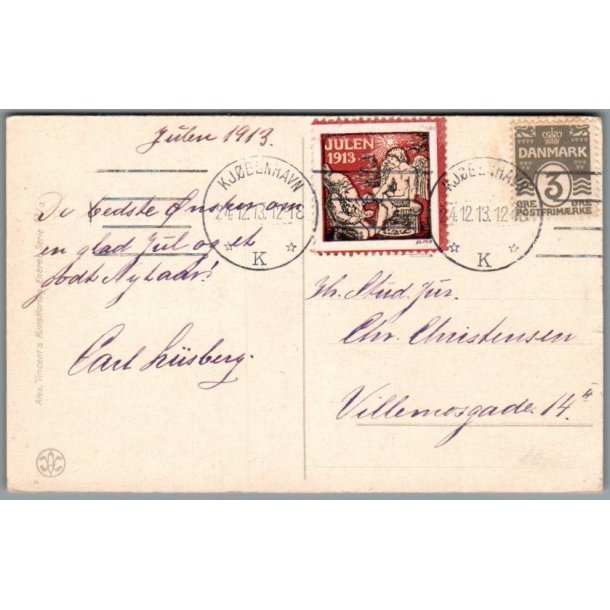 Julen 1913.
De bedste Ønsker om
en glad Jul og et
godt Nytaar!
Carl Lüsberg.
JULEN
1913
KJØBENHAVN
24.12.13.12-1 8
K
KJØBENHAVN
24.12.13.12-1
K
DANMARK
3
ØRE ØRE
POSTFRIMÆRKE
Hr. Stud. jur.
Chr. Christensen
Villemosgade 14
Alex. Vincent's Kunstforlag, Eneret. Serie